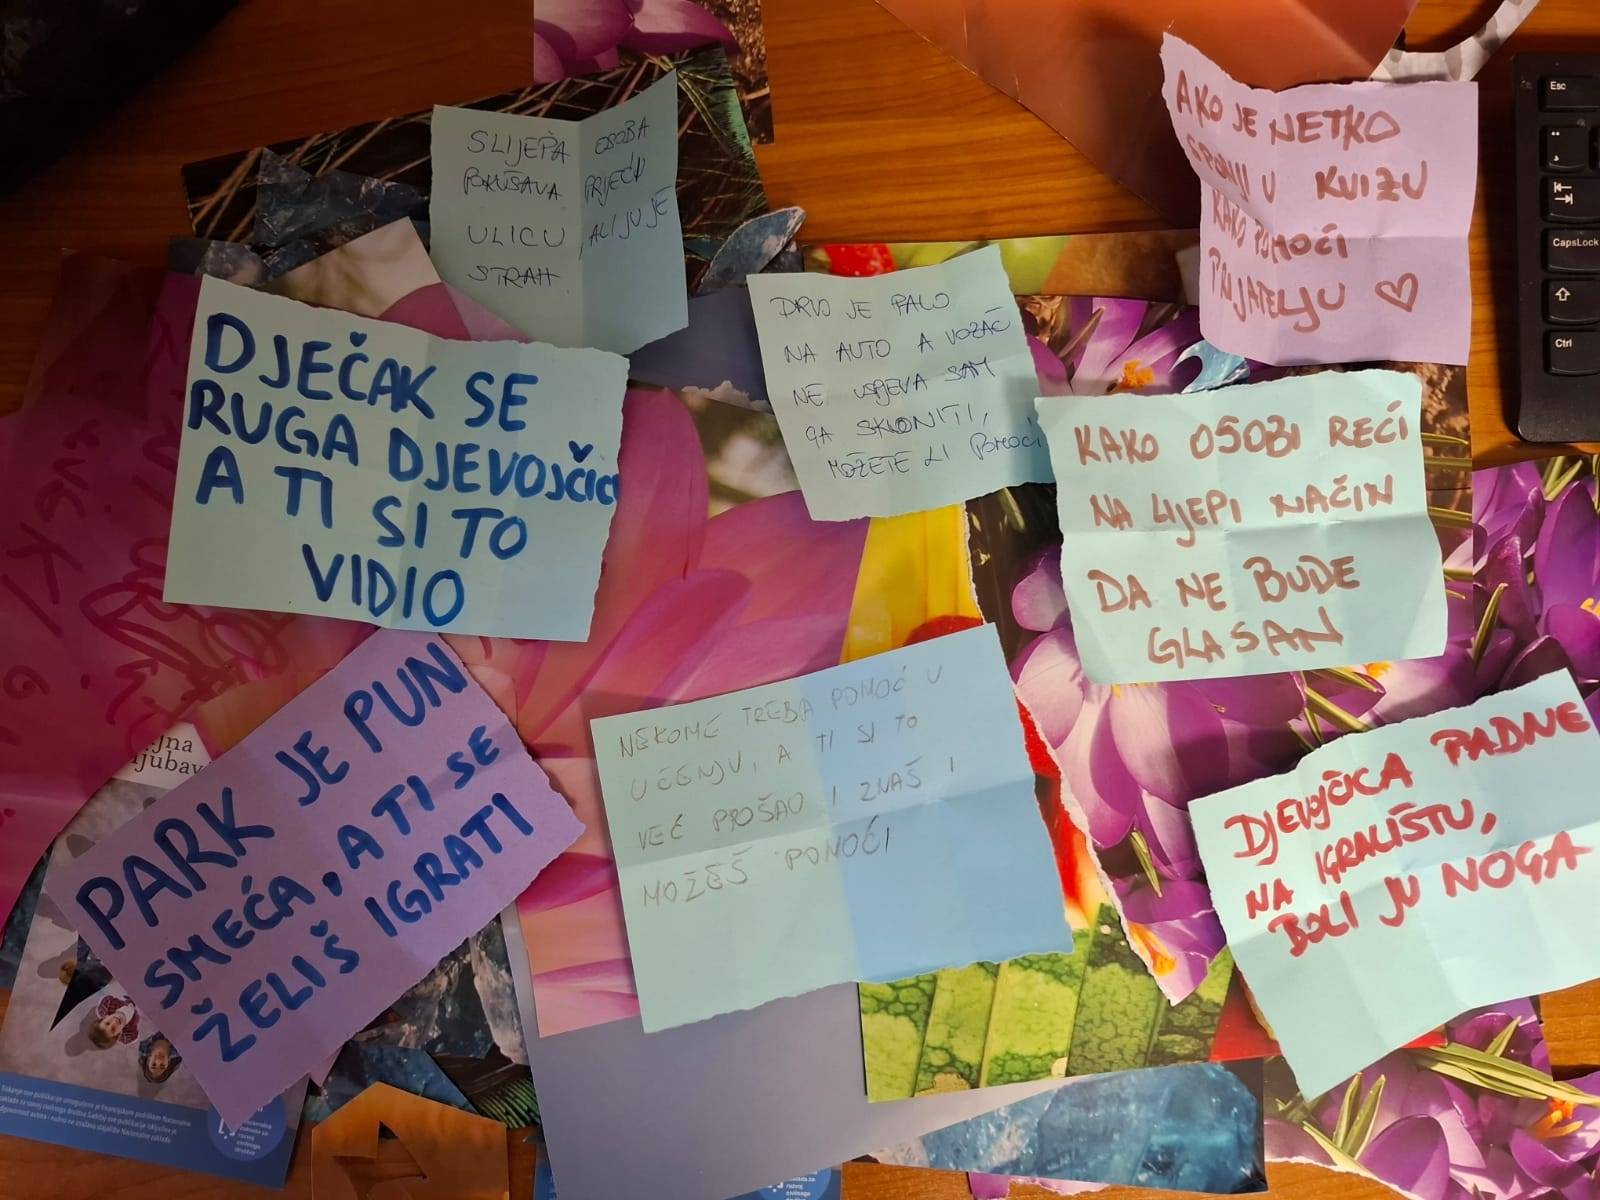 SLIJEPA OSOBA
POKUŠAVA PRIJEĆI
ULICU, ALI JU JE
STRAH.
AKO JE NETKO
SPORIJI U KVIZU
KAKO POMOĆI
PRIJATELJU ♡
DJEČAK SE
RUGA DJEVOJČICI
A TI SI TO
VIDIO
DRVO JE PALO
NA AUTO A VOZAČ
NE USPJEVA SAM
GA SKLONITI,
MOŽETE LI POMOĆI
KAKO OSOBI REĆI
NA LIJEPI NAČIN
DA NE BUDE
GLASAN
PARK JE PUN
SMEĆA, A TI SE
ŽELIŠ IGRATI
NEKOME TREBA POMOĆ U
UČENJU, A TI SI TO
VEĆ PROŠAO I ZNAŠ I
MOŽEŠ POMOĆI
DJEVOJČICA PADNE
NA IGRALIŠTU,
BOLI JU NOGA
ljubav
Esc
CapsLock
Ctrl